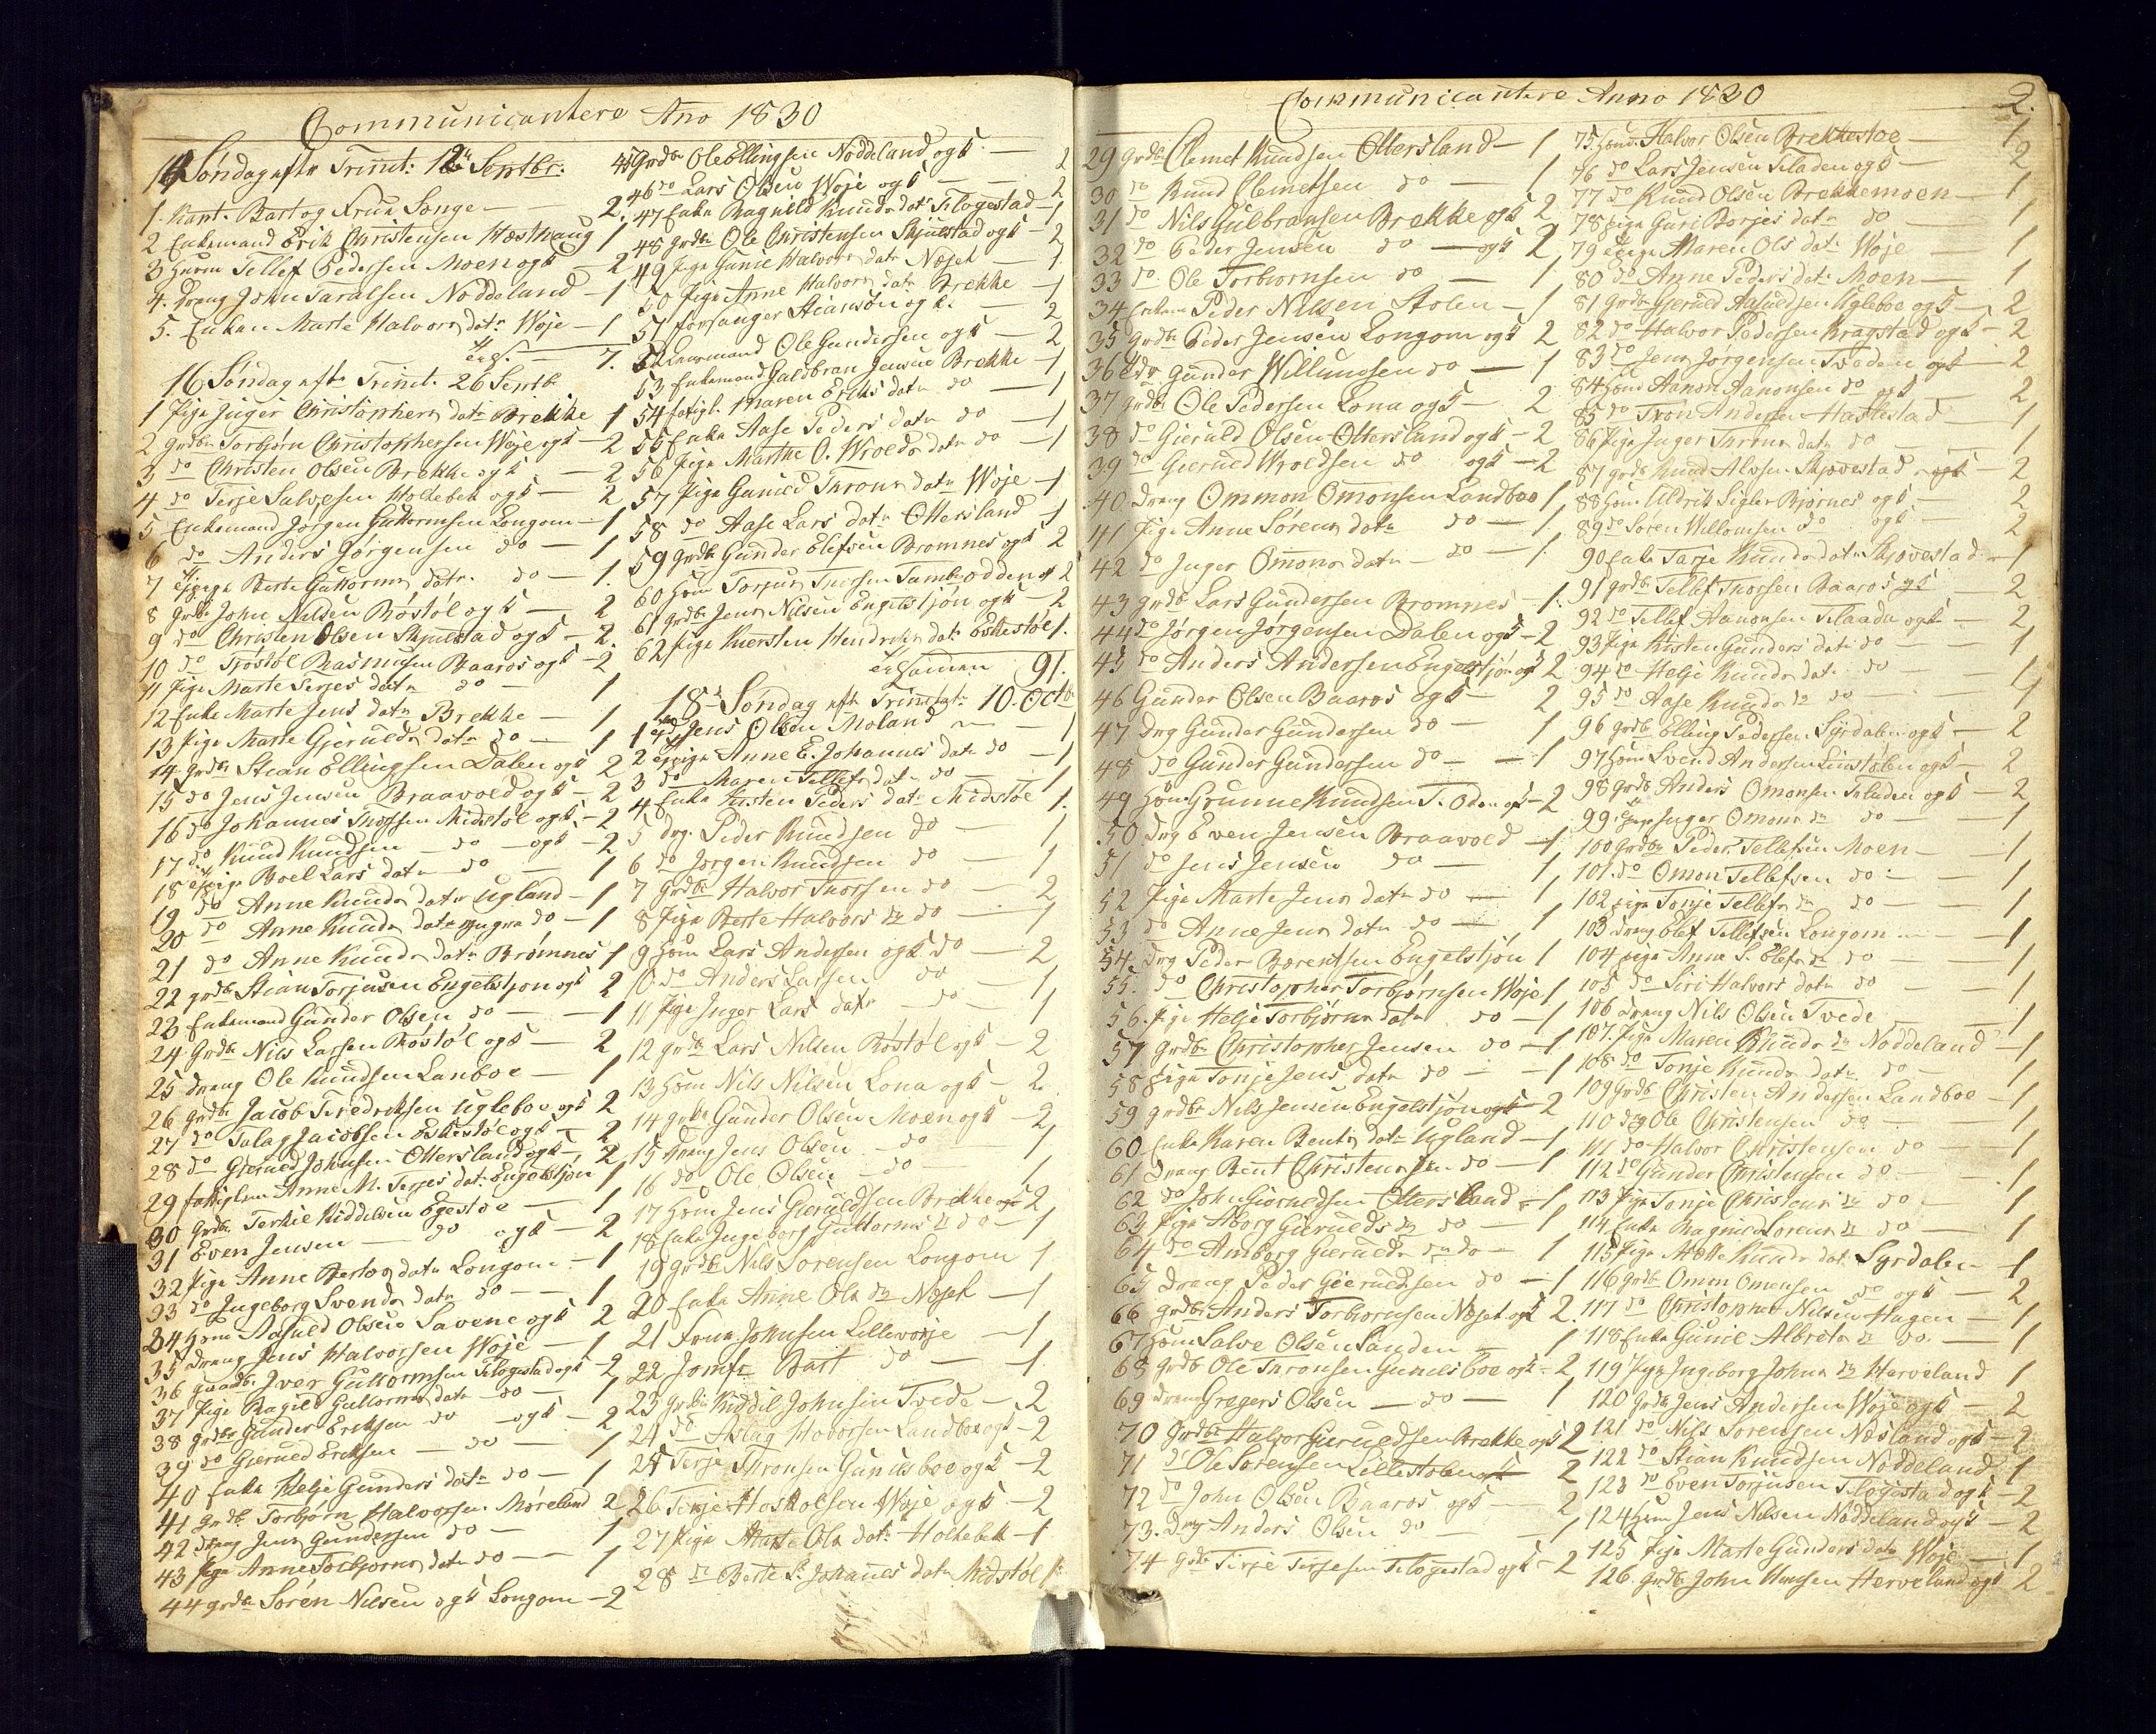 Communicantere Ano 1830
14 Søndag efter Trinit: 12te Septbr:
1. Kapt. Bart og Frue Songe — 2.
2 Enkemand Erik Christensen Hæsthaug 1
3 Huusm Tellef Pedersen Moen ogk — 2
4. Dreng John Taralsen Noddeland — 1
5. Enken Marte Halvors datr Woje — 1
7.
16 Søndag eftr Trinit. 26 Septb
1 Pige Inger Christophers datr Brekke 1
2 Grdbr Torbjørn Christophersen Woje ogk — 2
3 do Christen Olsen Brekke ogk — 2
4 do Terje Salvesen Holtebek ogk — 2
5 Enkemand Jørgen Guttormsen Longom — 1
6 do Anders Jørgensen do — 1
7 Pige Berte Guttorms datr do — 1.
8 Grdbr John Nilsen Røstøl ogk — 2
9 do Christen Olsen Skjulestad ogk — 2.
10 do Tjøstøl Rasmusen Baaros ogk — 2
11 Pige Marte Terjes datr do — 1
12 Enke Marte Jens datr Brekke — 1
13 Pige Marte Gjerulds datr do — 1
14 Grdbr Stian Ellingsen Dalen ogk 2
15 do Jens Jensen Braavold ogk — 2
16 do Johannes Thorsen Midstøl ogk — 2
17 do Knud Knudsen — do — ogk — 2
18 Pige Boel Lars datr — do — 1
19 do Anne Knuds datr Ugland — 1
20 do Anne Knuds datr yngre do — 1
21 do Anne Knuds datr Brømnes 1
22 grdbr Stian Torjusen Engelstjøn ogk 2
23 Enkemand Gunder Olsen do — 1
24 Grdbr Nils Larsen Røstøl ogk — 2
25 Dreng Ole Knudsen Lanboe — 1
26 Grdbr Jacob Fredriksen Ugleboe ogk 2
27 do Talag Jacobsen Eskestøl ogk — 2
28 do Gjeruld Johnsen Ottersland ogk — 2
29 fattiglem Anne M. Terjes datr Engelstjøn 1
30 Grdbr Terkil Kiddelsen Egestøe — 1
31 Even Jensen — do ogk — 2
32 Pige Anne Bertos datr Longom — 1
33 do Ingeborg Svends datr do — 1
34 Huusm Aasuld Olsen Savene ogk 2
35 Dreng Jens Halvorsen Woje — 1
36 Gaardbr Iver Guttormsen Tlogestad ogk — 2
37 Pige Ragild Guttorms datr do — 1
38 Grdbr Gunder Eriksen do — ogk — 2
39 do Gjeruld Eriksen — do — 1
40 Enke Helje Gunders datr do — 1
41 Grdb. Torbjørn Halvorsen Møreland 2
42 Dreng Jens Gundersen do — 1
43 Pige Anne Torbjørns datr do — 1
44 grdbr Søren Nilsen ogk Longom — 2
45 Grdbr Ole Ellingsen Noddeland ogk — 2
46 do Lars Olsen Woje ogk — 2
47 Enke Ragnild Knuds datr Tlogestad — 1
48 Grdbr Ole Christensen Skjulestad ogk — 2
49 Pige Gunil Halvors datr Næset — 1
50 Pige Anne Halvors datr Brekke — 1
51 Forsanger Stiansen ogk. — 2
52 Ole Gundersen ogk — 2
53 Enkemand Guldbran Jensen Brekke — 1
54 fatigl. Maren Eriks datr do — 1
55 Enke Aase Peders datr do — 1
56 Pige Marthe O. Wroldsdatr do — 1
57 Pige Gunild Throns datr Woje — 1
58 do Aase Lars datr Ottersland — 1
59 Grdbr Gunder Elefsen Bromnes ogk 2
60 Huusm Torjus Thorsen Tambodden ogk 2
61 grdbr Jens Nilsen Engelstjøn ogk — 2
62 Pige Kiersten Hendriks datr Eskestøl 1.
91.
18de Søndag eftr Trinitatis 10. Octb
1 Jens Olsen Moland — 1
2 Pige Anne E. Johannes datr do — 1
3 do Maren Tellefs datr do — 1
4 Enke Kirsten Peders datr Midstøl 1.
5 Drg. Peder Knudsen do — 1
6 do Jørgen Knudsen do — 1
7 Grdbr Halvor Thorsen do — 2
8 Pige Berte Halvors dr do — 1
9 Huusm Lars Andersen ogk do — 2
10 do Anders Larsen do — 1
11 Pige Inger Lars datr do — 1
12 grdbr Lars Nilsen Røstøl ogk — 2
13 Huusm Nils Nilsen Lona ogk — 2.
14 Grdbr Gunder Olsen Moen ogk — 2
15 Dreng Jens Olsen do — 1
16 do Ole Olsen do — 1
17 Huusm Jens Gjeruldsen Brekke ogk 2
18 Enke Ingeborg Guttorms dr do — 1
19 Grdbr Nils Sorensen Longom 1
20 Enke Anne Ols dr Næset — 1
21 Frue Johnsen Lillewoje — 1
22 Jomfr. Bart do — 1
23 Grdbr Kiddil Johnsen Tvede — 2
24 do Aslag Hovorsen Landboe ogk — 2
25 Terje Thronsen Gunilsboe ogk — 2
26 Terje Hoskolsen Woje ogk — 2
27 Pige Marte Ols datr Holtebek — 1
28 do Berte S. Johannes datr Midstøl 1.
Communicantere Anno 1830
2.
29 Grdbr Clemet Knudsen Ottersland — 1
30 do Knud Clemetsen do — 1
31 do Nils Gulbransen Brekke ogk 2
32 do Peder Jensen do — ogk 2
33 do Ole Torbiornsen do — 1
34 Enkem Peder Nilsen Stolen — 1
35 Grdbr Peder Jensen Longom ogk 2
36 Gunder Willumsen do — 1
37 Grdbr Ole Pedersen Lona ogk — 2
38 do Gieruld Olsen Ottersland ogk — 2
39 do Gieruld Wroldsen do ogk — 2
40 Dreng Ommon Omonsen Landboe 1
41 Pige Anne Sørens datr do — 1.
42 do Inger Omons datr — do — 1.
43 Grdbr Lars Gundersen Bromnes — 1.
44 do Jørgen Jørgensen Dalen ogk — 2
45 do Anders Andersen Engelstjøn ogk 2
46 Gunder Olsen Baaros ogk — 2
47 Drg Gunder Gundersen do — 1
48 do Gunder Gundersen do — 1
49 Huusm Grunne Knudsen T. Oden ogk — 2
50 Drg Even Jensen Braavold — 1
51 do Jens Jensen do — 1
52 Pige Marte Jens datr do — 1
53 do Anne Jens datr do — 1
54. Drg Peder Bærentsen Engelstjøn 1
55. do Christopher Torbjørnsen Woje 1.
56. Pige Helje Torbjørns datr do — 1
57 Grdbr Christopher Jensen do — 1
58 Pige Tonje Jens datr do — 1
59 Grdbr Nils Jensen Engelstjøn ogk — 2
60 Enke Karen Bents datr Ugland — 1
61 Dreng Bent Christensen do — 1
62 do John Gieruldsen Ottersland — 1
63 Pige Aborg Gierulds dr do — 1
64 do Amborg Gierulds dr do — 1
65 Dreng Peder Gieruldsen do — 1
66 Grdbr Anders Torbiornsen Næset ogk 2.
67 Huusm Salve Olsen Sanden — 1
68 Grdb Ole Thronsen Gunilsboe ogk — 2
69 Dreng Gregers Olsen — do — 1
70 Grdbr Halvor Gieruldsen Brekke ogk 2
71 do Ole Sorensen Lillestolen ogk 2
72 do John Olsen Baaros ogk — 2
73. Drg Anders Olsen do — 1
74 Grdbr Terje Terjesen Tlogestad ogk — 2
75. Huusm Halvor Olsen Brekkestøe — 1
76 do Lars Jensen Tladen ogk — 2
77 do Knud Olsen Brekkemoen — 1
78 Pige Guri Børges datr do — 1
79 Pige Maren Ols datr Woje — 1
80 do Anne Peders datr Moen — 1
81 Grdbr Gjeruld Aasuldsen Ugleboe ogk — 2
82 do Halvor Pedersen Kragstad ogk — 2
83 do Jens Jørgensen Tvaden ogk — 2
84 Huusm Aanon Aanonsen do ogk — 2
85 do Tron Andersen Hastestad — 1
86 Pige Inger Throns datr do — 1
87 Grdb Knud Alvsen Skjovestad ogk — 2
88 Huusm Uldrik Sigler Bjørnes ogk — 2
89 do Soren Willomsen do ogk — 2
90 Enke Tarje Knuds datr Skjovestad — 1
91 grdbr Tellef Thorsen Baaros ogk — 2
92 do Tellef Aanonsen Tlaadn ogk — 2
93 Pige Kirsten Gunders datr do — 1
94 do Helje Knuds datr do — 1
95 do Aase Knuds dr do — 1
96 Grdb Elling Pedersen Syrdalen ogk — 2
97 Huusm Svend Andersen Linstølen ogk — 2
98 Grdb Anders Omonsen Tladen ogk — 2
99. Pige Inger Omons dr do — 1
100 Grdbr Peder Tellefsen Moen — 1
101. do Omon Tellefsen do — 1
102 Pige Tonje Tellefs dr do — 1
103 Dreng Elef Tellefsen Longom — 1
104 Pige Anne S. Elefs dr do — 1
105 do Siri Halvors datr do — 1
106 Dreng Nils Olsen Tvede — 1
107. Pige Maren Knuds dr Noddeland — 1
108 do Tonje Knuds datr do — 1
109 Grdb Christen Andersen Landboe — 1
110 Drg Ole Christensen do — 1
111 do Halvor Christensen do — 1
112 do Gunder Christensen do — 1
113 Pige Tonje Christens dr do — 1
114 Enke Ragnild Sorens dr do — 1
115 Pige Mette Knuds datr Syrdalen — 1
116 Grdb Omm Omensen do ogk — 2
117 do Christopher Nilsen Hagen — 1
118 Enke Gunil Albrets dr do. — 1
119 Pige Ingeborg Johns dr Herveland 1
120 Grdb Jens Andersen Woje ogk — 2
121 do Nils Sorensen Næsland ogk — 2
122 do Stian Knudsen Noddeland 1
123 do Even Torjusen Tlogestad ogk — 2
124 Huusm Jens Nilsen Noddeland ogk — 2
125 Pige Marte Gunders datr Woje — 1
126. Grdb John Hansen Herveland ogk 2